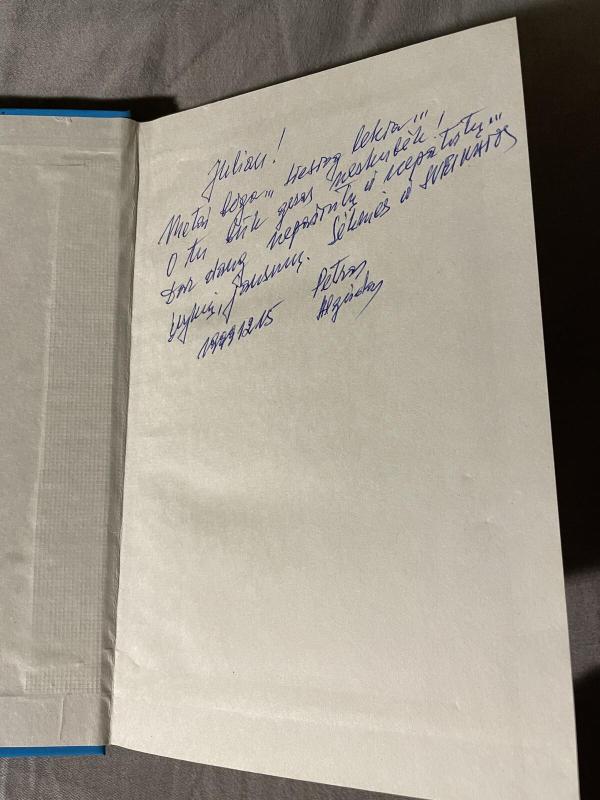 Julian!
Metai bėga... tiesiog lekia...
O tu būk geras neskubėk!
Dar daug nepažintų ir nepatirtų...
Sėkmės ir SVEIKATOS
Petras
Algirdas
1999 12 15